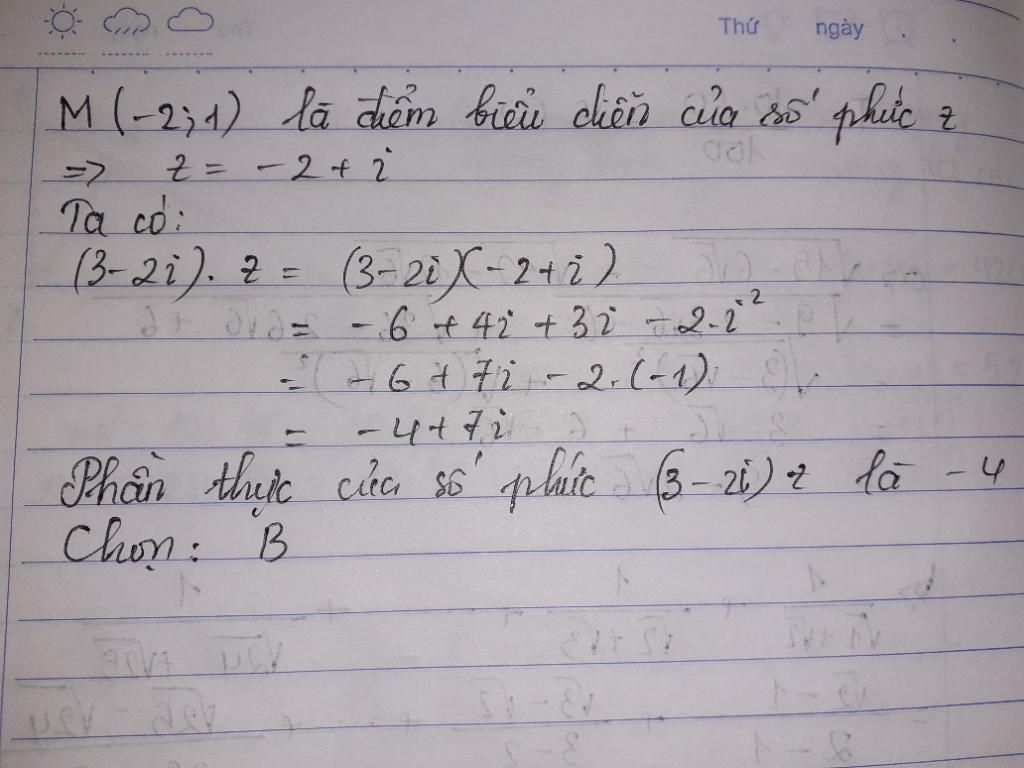 Thứ ngày
M(-2;1) là điểm biểu diễn của số phức z
=> z = -2 + i
Ta có:
(3-2i). z = (3-2i)(-2+i)
= -6 + 4i + 3i - 2.i²
= -6 + 7i - 2.(-1)
= -4+7i
Phần thực của số phức (3-2i) z là -4
Chọn: B